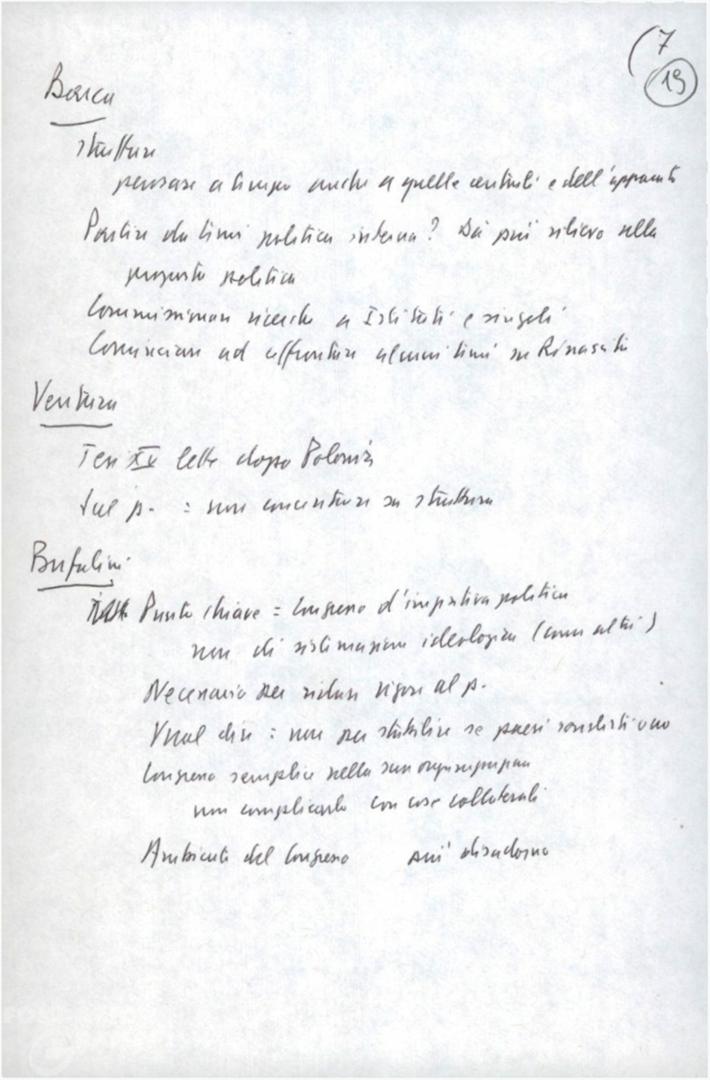 7
19
Barca
strutture
pensare a tempo anche a quelle centrali e dell'apparato
Partire da temi politica interna? Dà più rilievo alla
proposta politica
Commissionare ricerche a Istituti e singoli
Cominciare ad affrontare alcuni temi su Rinascita
Ventura
Tesi XV lette dopo Polonia
Sul p. = non concentrare su struttura
Bufalini
Punto chiave = Congresso d'iniziativa politica
non di sistemazione ideologica (come altri)
Necessario per ridare vigore al p.
Vuol dire : non per stabilire se paesi socialisti o no
Congresso semplice nella sua
non complicarlo con cose collaterali
Ambiente del Congresso più disadorno